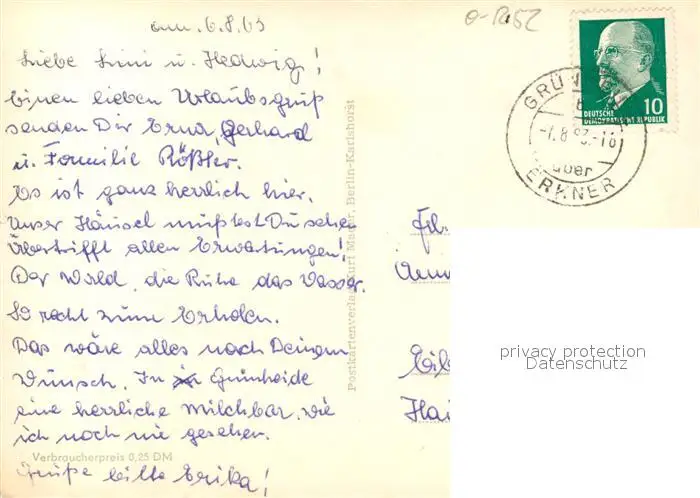 am. 6.8.63
Liebe Lini u. Hedwig!
Einen lieben Urlaubsgruß
senden Dir Erna, Gerhard
u. Familie Rößler.
Es ist ganz herrlich hier.
Unser Häusel mußtest Du sehen
Übertrifft allen Erwartungen!
Der Wald, die Ruhe das Wasser.
So recht zum Erholen.
Das wäre alles nach Deinem
Wunsch. In Grünheide
eine herrliche Milchbar, wie
ich noch nie gesehen.
Verbraucherpreis 0,25 DM
Grüße bitte Erika!
Postkartenverlag Kurt Maier, Berlin-Karlshorst
10
DEUTSCHE
DEMOKRATISCHE REPUBLIK
über
ERKNER
privacy protection
Datenschutz